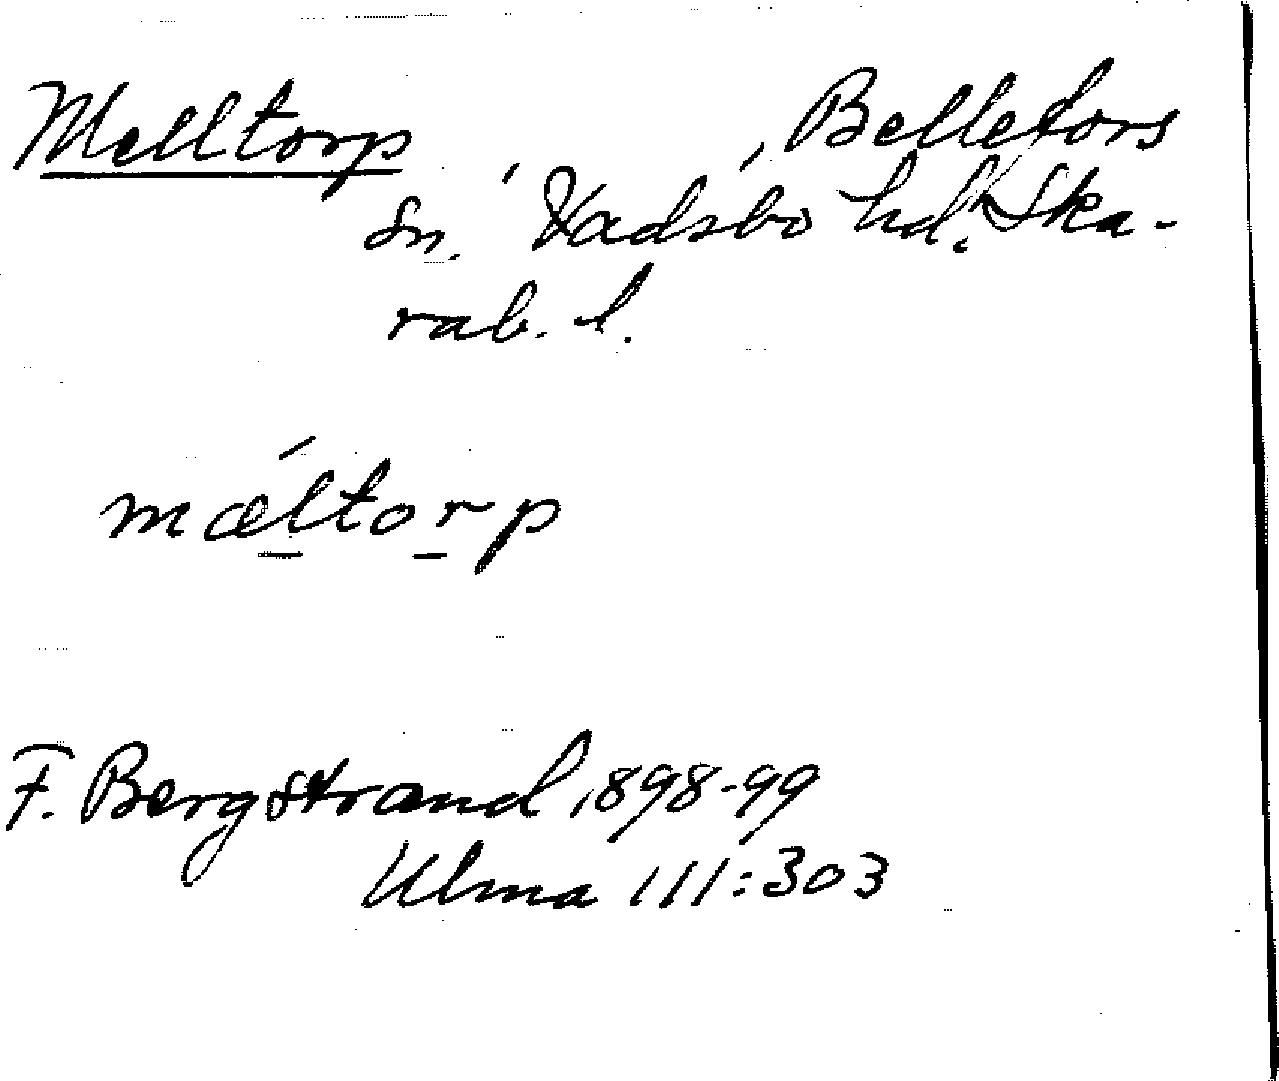 Melltorp , , Bellefors
sn. Vadsbo hd. Ska-
rab. l.
mæ´ltorp
F. Bergstrand 1898-99
Ulma 111:303